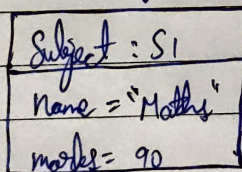 Subject : S1
name = "Maths"
marks = 90